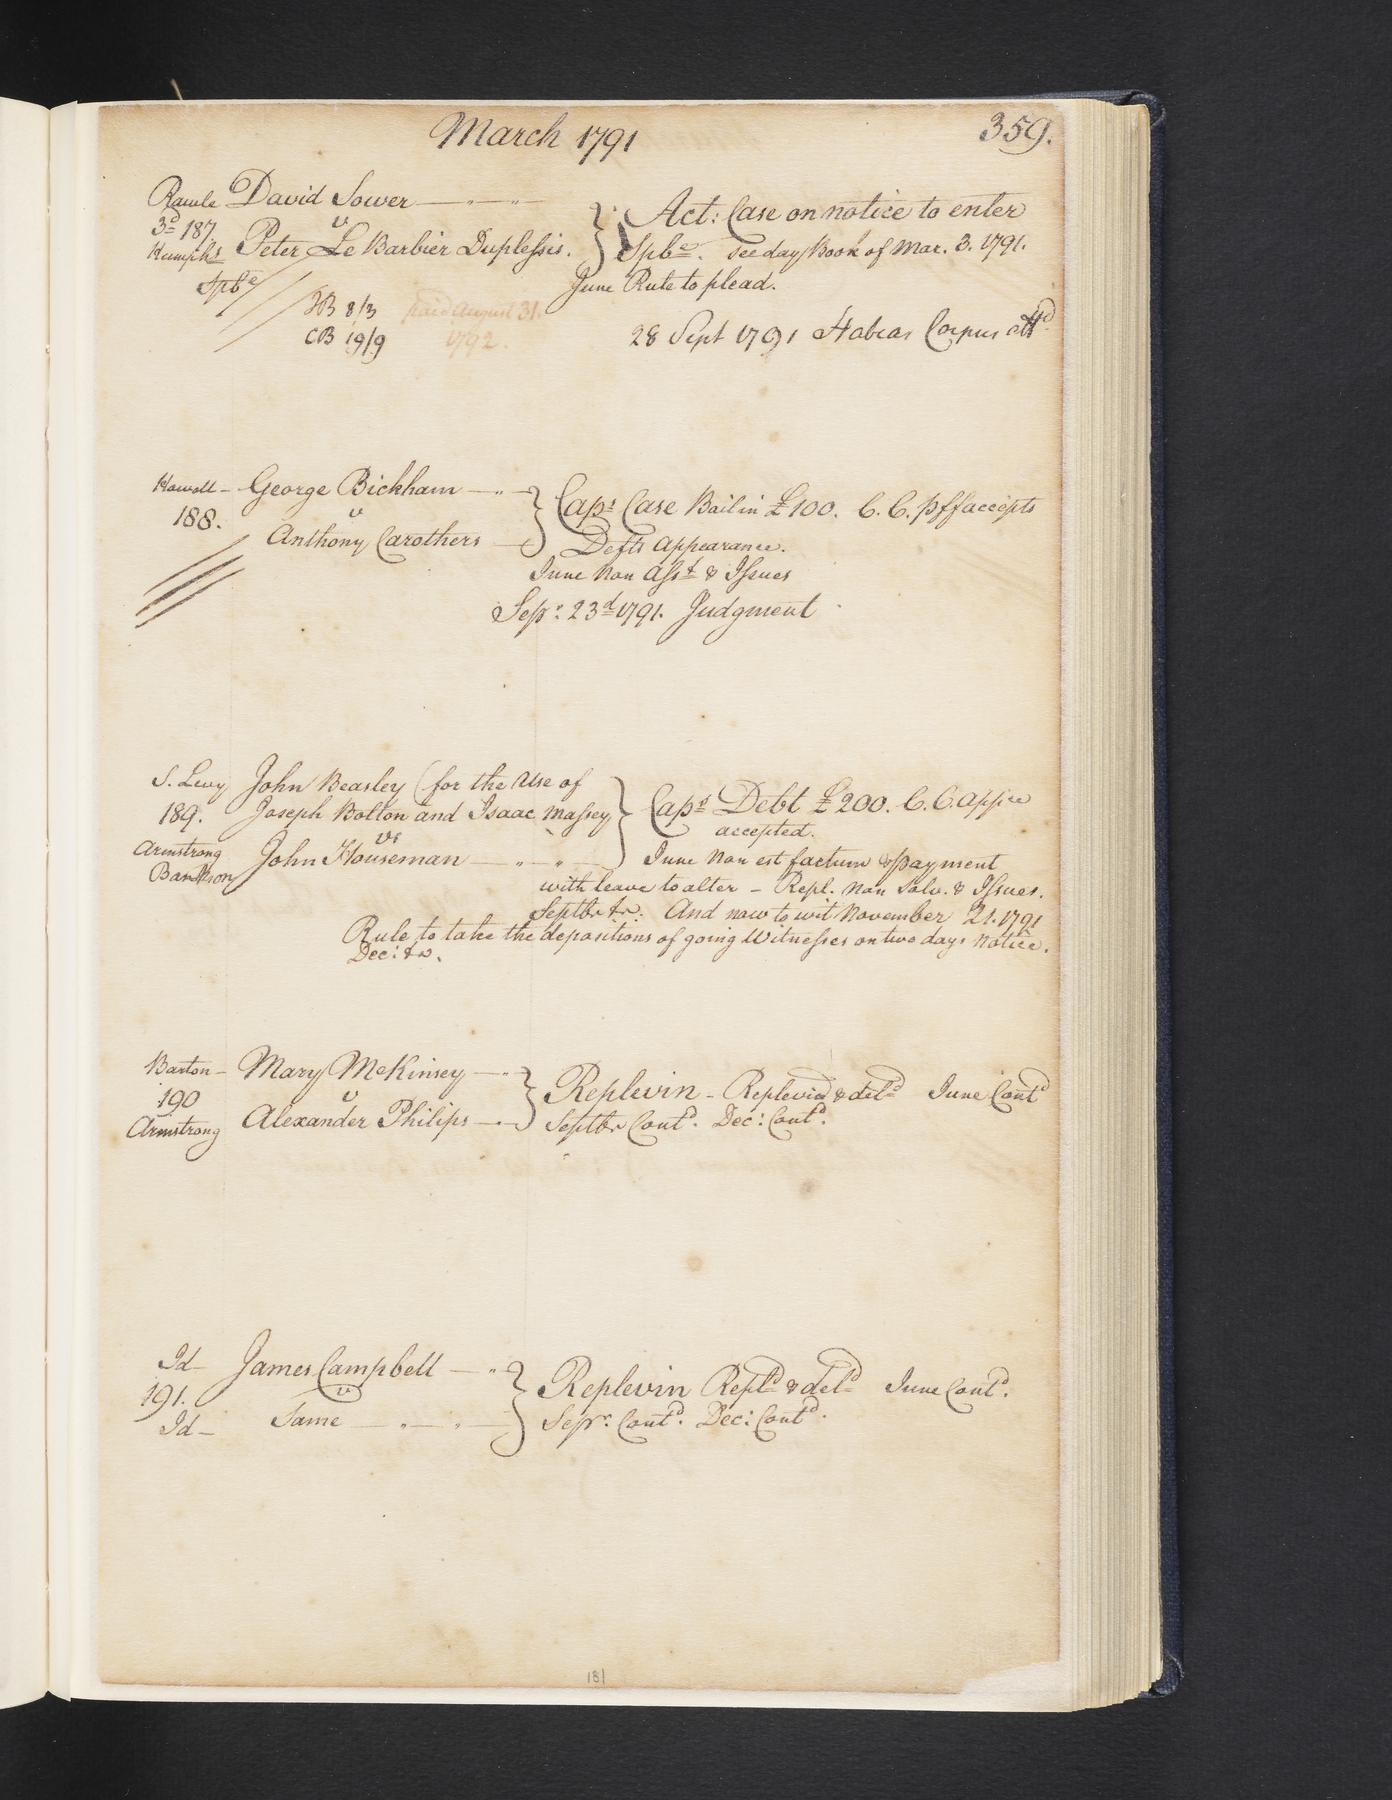 March 1791
359.
Rawle David Sower
3d 187.
v
Humphs Peter Le Barbier Duplessis.
Spbe
Act: Case on notice to enter
Spbe. see day Book of Mar. 3. 1791.
June Rule to plead.
JB 8/3 paid August 31.
CB 19/9 1792.
28 Sept 1791 Habeas Corpus
Howell - George Bickham
188. v
Anthony Carothers
Caps Case Bail in £100. C. C. plff accepts
Defts appearance.
June Non Asst & Issues
Sepr: 23d 1791. Judgment
S. Levy John Beasley (for the Use of
189. Joseph Bolton and Isaac Massey
vs
Armstrong John Houseman
Bankson
Caps Debt £200. C. C. appce
accepted.
June Non est factum & payment
with leave to alter - Repl. Non Solv. & Issues.
Septbr &c. And now to wit November 21. 1791
Rule to take the depositions of going Witnesses on two days Notice.
Dec: &c.
Barton - Mary McKinsey
190 v
Armstrong Alexander Philips
Replevin - Replevied & deld June Contd
Septbr Contd. Dec: Contd.
Id - James Campbell
191. v
Id - Same
Replevin Repld & deld June Contd.
Sepr. Contd. Dec: Contd.
181